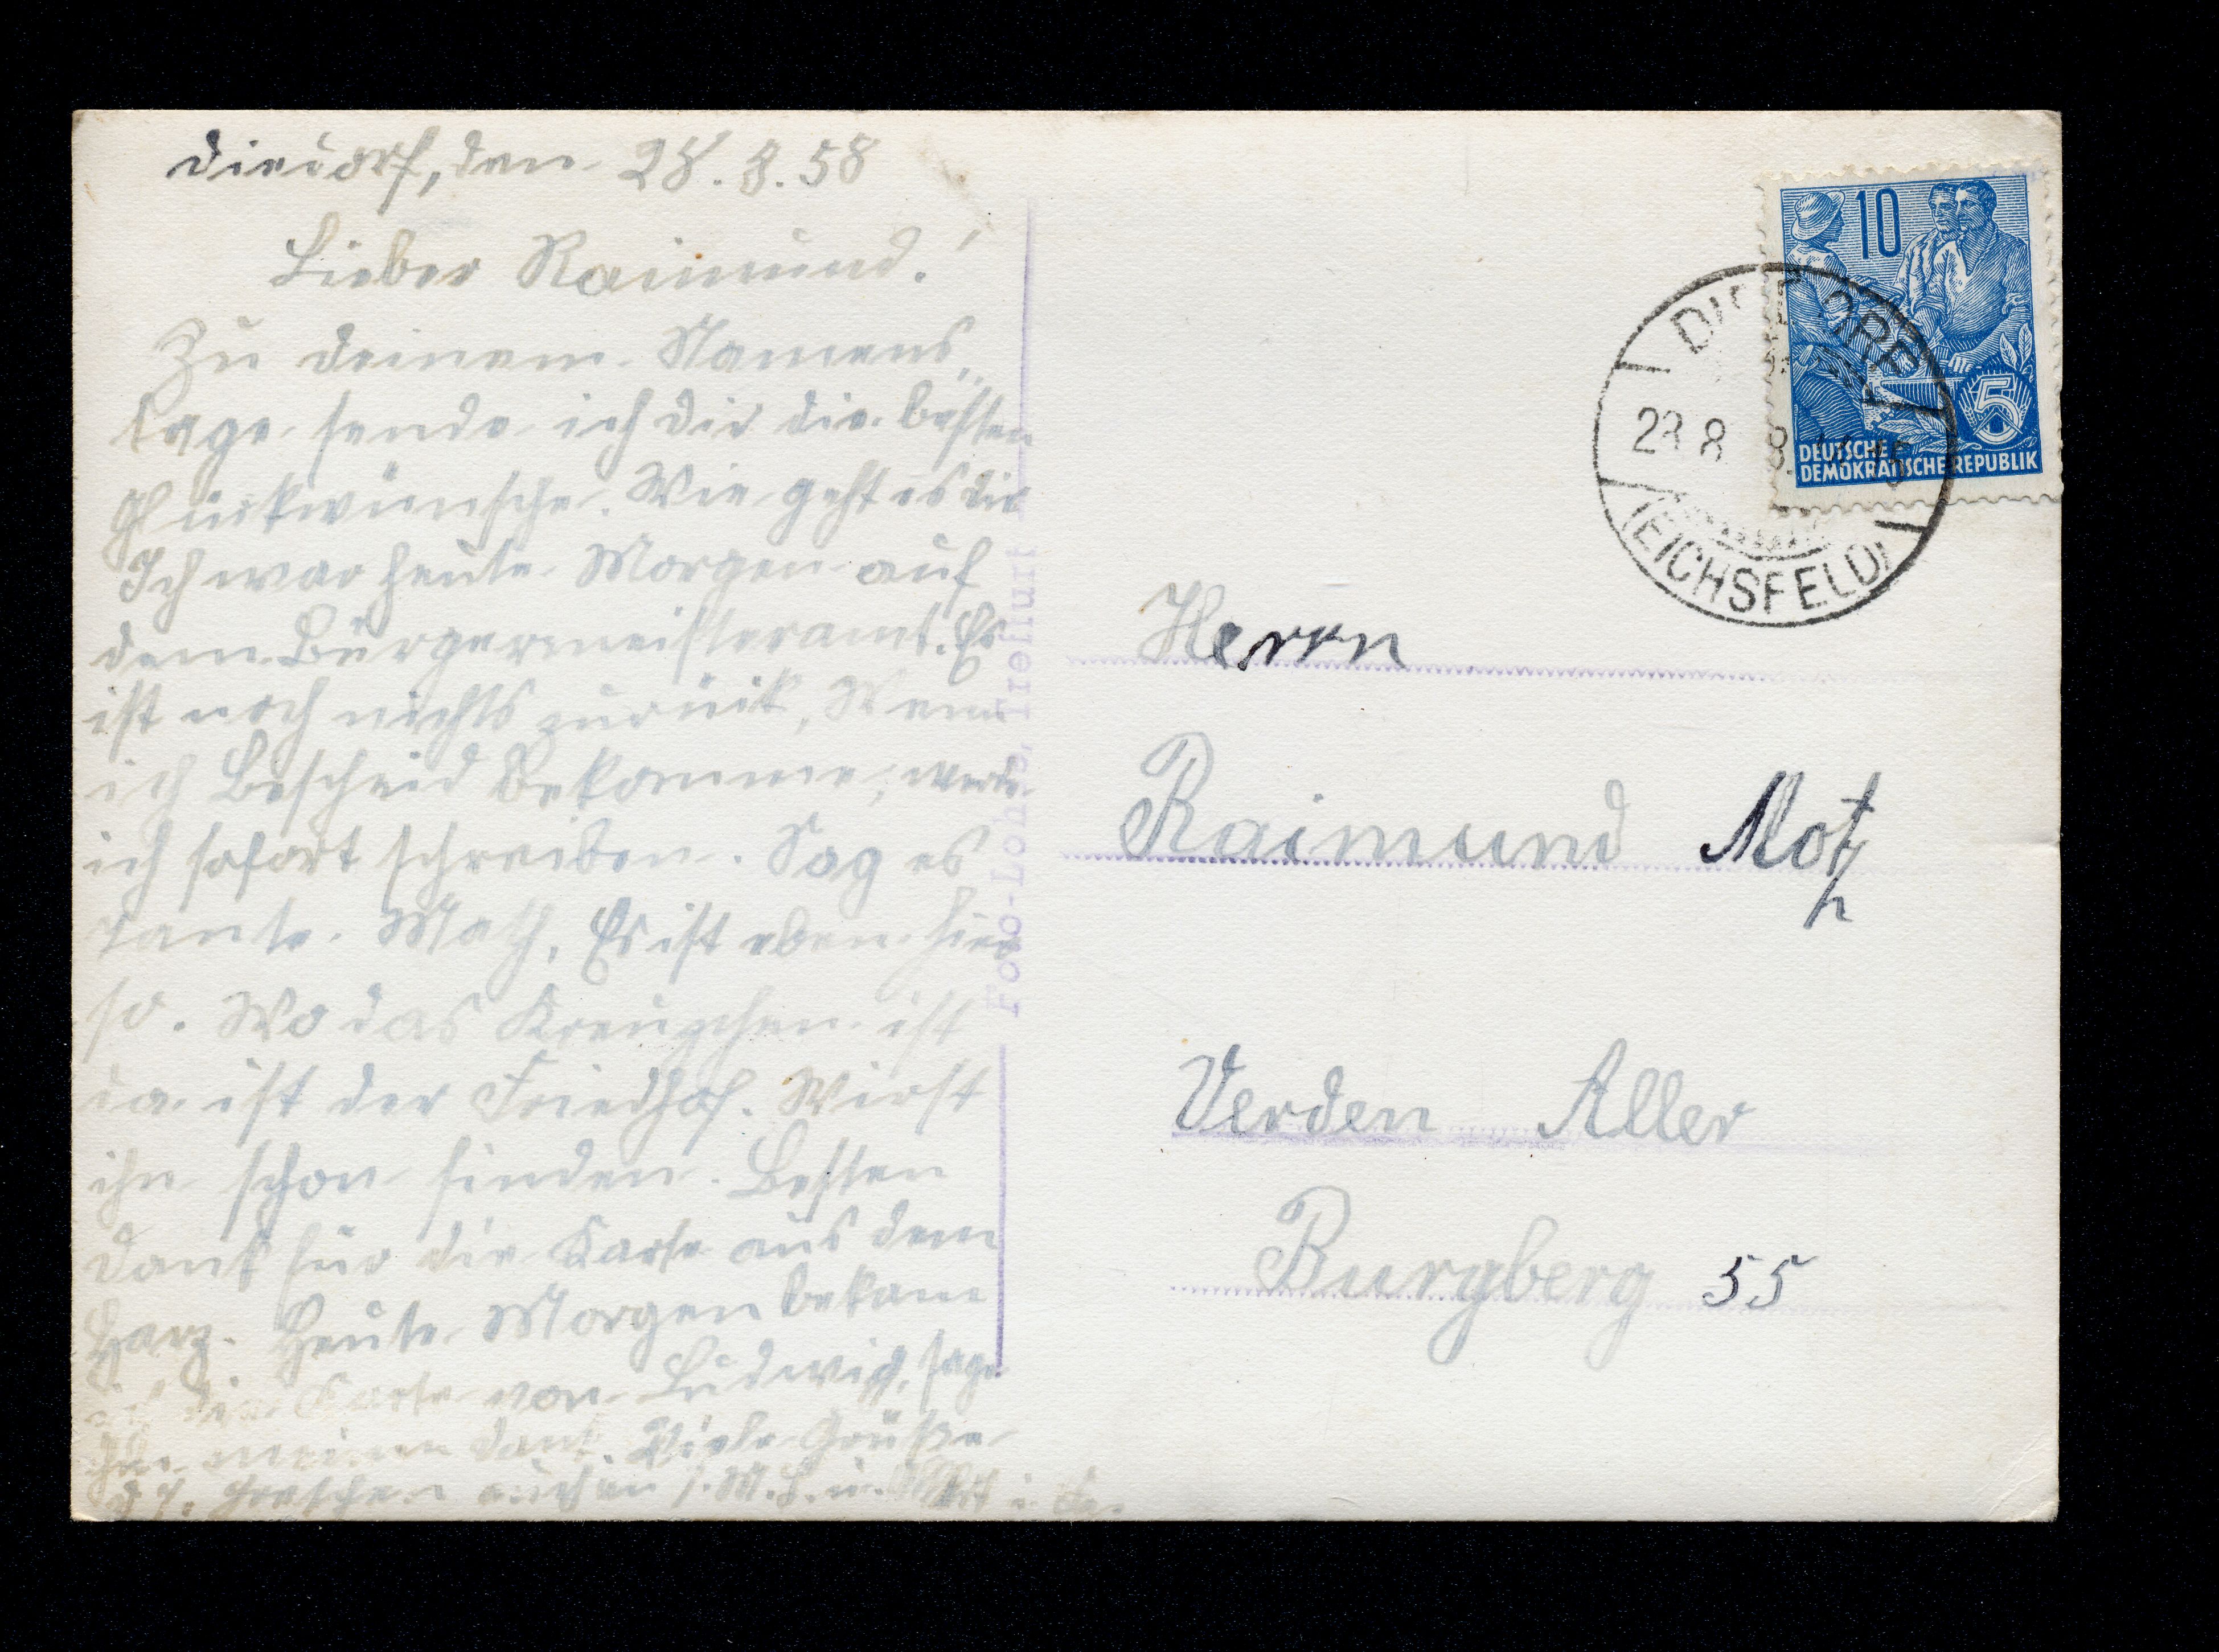 Diedorf, den 28.8.58
Lieber Raimund!
Zu deinem Namens„
tage sende ich dir die besten
Glückwünsche. Wie geht es dir
Ich war heute Morgen auf
dem Bürgermeisteramt. Es
ist noch nichts zurück, Wenn
ich Bescheid bekomme, werde
ich sofort schreiben. Sag es
Tante. Math. Es ist eben hier
so. Wo das Kreuzchen ist
da ist der Friedhof. Wirst
ihn schon finden. Besten
Dank für die Karte aus dem
Harz. Heute Morgen bekam
ich die Karte von Ludwig, sage
Ihm meinen Dank. Viele Grüße
auch an
Foto-Lohs, Treffurt
10
5
DEUTSCHE
DEMOKRATISCHE REPUBLIK
DIEDORF
28.8
(EICHSFELD)
Herrn
Raimund Motz
Verden Aller
Burgberg 55